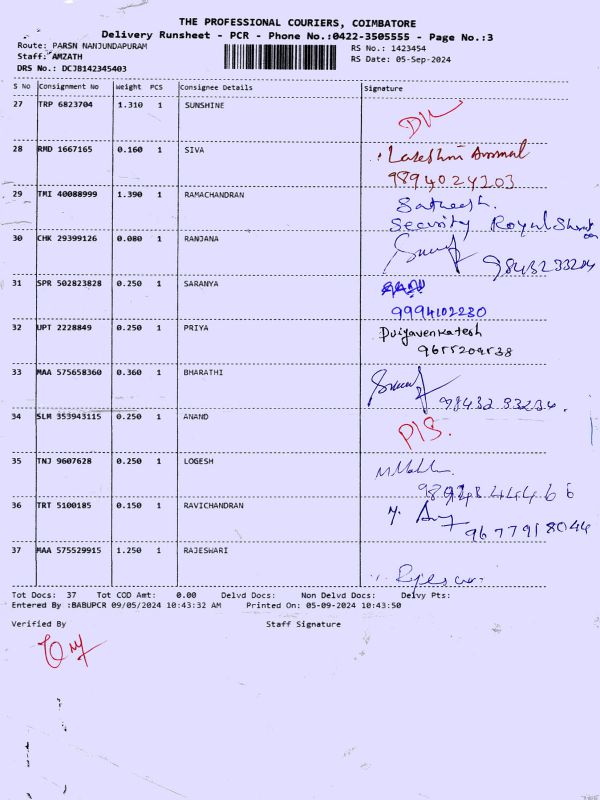 THE PROFESSIONAL COURIERS, COIMBATORE
Delivery Runsheet - PCR - Phone No.:0422-3505555 - Page No.:3
Route: PARSN NANJUNDAPURAM RS No.: 1423454
Staff: AMZATH RS Date: 05-Sep-2024
DRS No.: DCJB142345403
S No Consignment No Weight PCS Consignee Details Signature
27 TRP 6823704 1.310 1 SUNSHINE
28 RMD 1667165 0.160 1 SIVA Lakshmi Ammal
9894024203
29 TMI 40088999 1.390 1 RAMACHANDRAN Satheesh.
Security Royal
30 CHK 29399126 0.080 1 RANJANA 9843233234
31 SPR 502823828 0.250 1 SARANYA
9994102230
32 UPT 2228849 0.250 1 PRIYA Priyavenkatesh
33 MAA 575658360 0.360 1 BHARATHI 98432 33234.
34 SLM 353943115 0.250 1 ANAND
35 TNJ 9607628 0.250 1 LOGESH
36 TRT 5100185 0.150 1 RAVICHANDRAN 9677918044
37 MAA 575529915 1.250 1 RAJESWARI
Tot Docs: 37 Tot COD Amt: 0.00 Delvd Docs: Non Delvd Docs: Delvy Pts:
Entered By :BABUPCR 09/05/2024 10:43:32 AM Printed On: 05-09-2024 10:43:50
Verified By Staff Signature